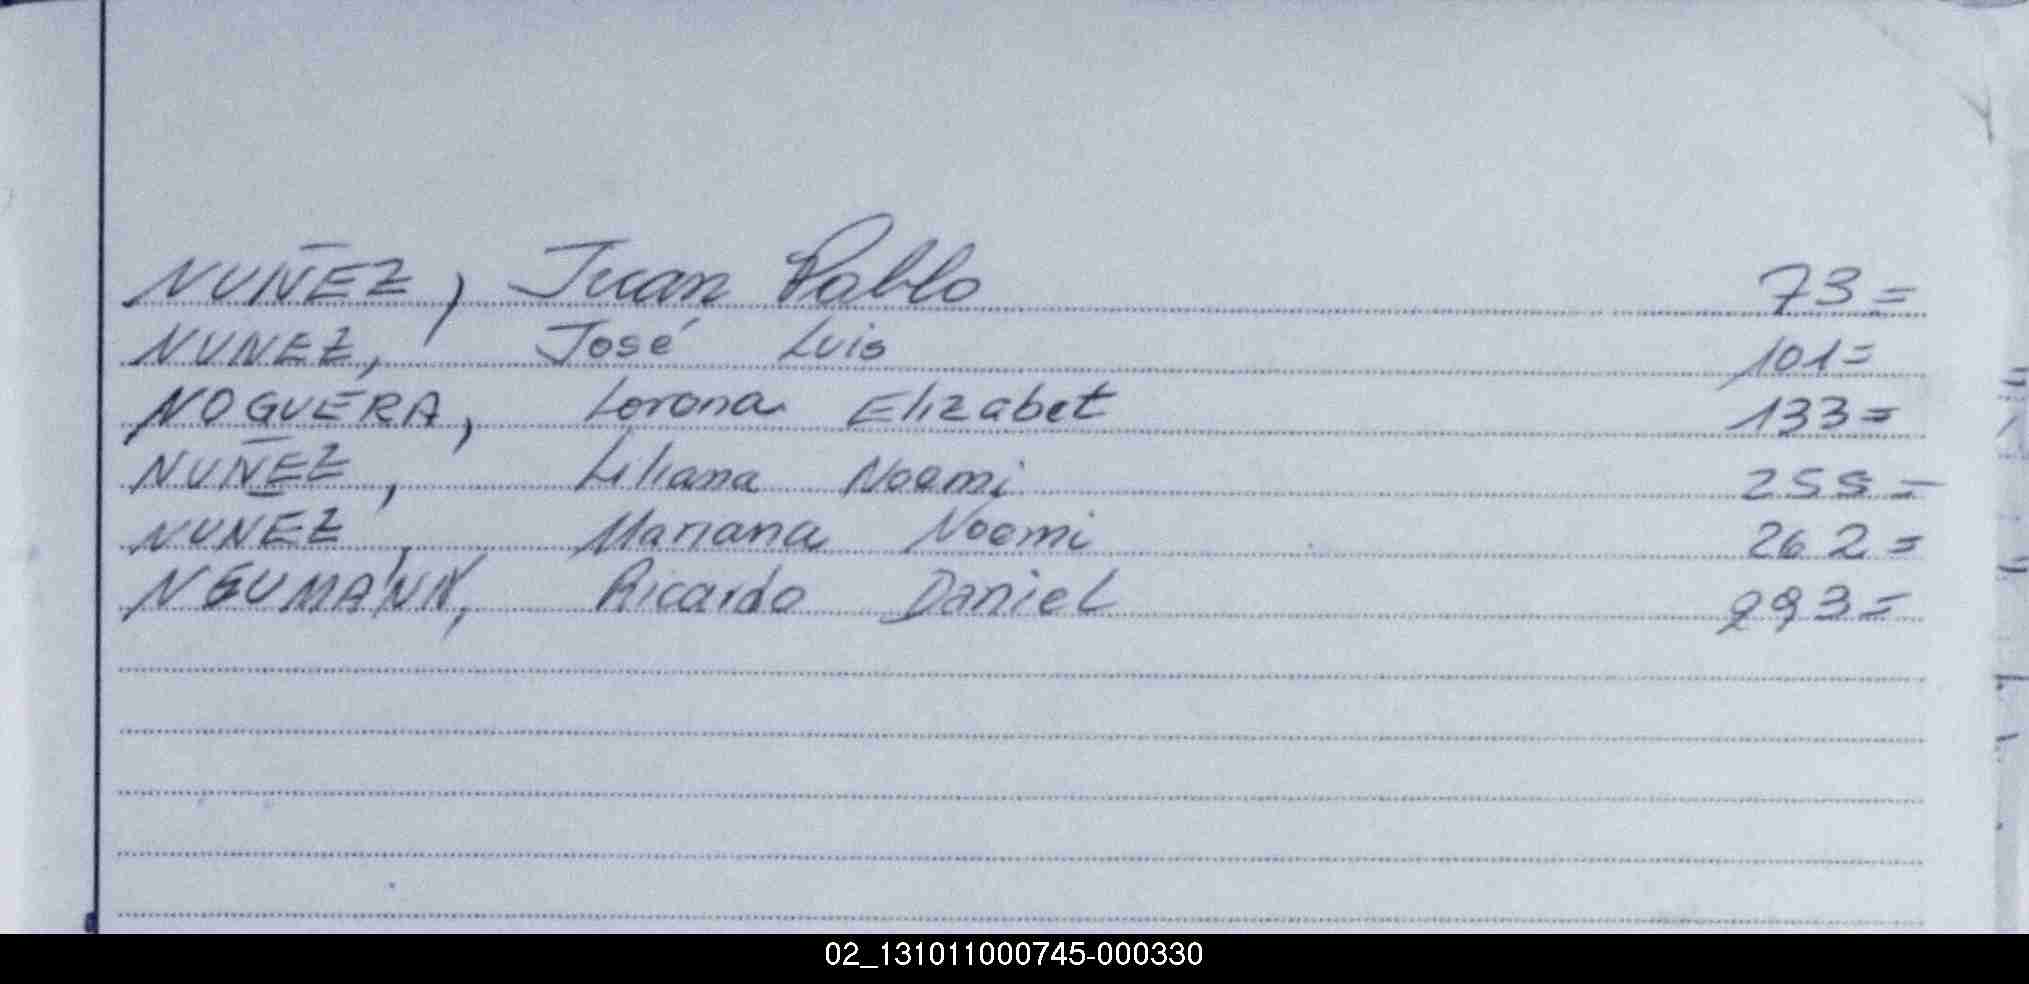 NUÑEZ, Juan Pablo 73=
NUNEZ, José Luis 101=
NOGUERA, Lorena Elizabet 133=
NUÑEZ, Liliana Noemi 255=
NUNEZ, Mariana Noemi 262=
NEUMANN, Ricardo Daniel 293=
02_131011000745-000330